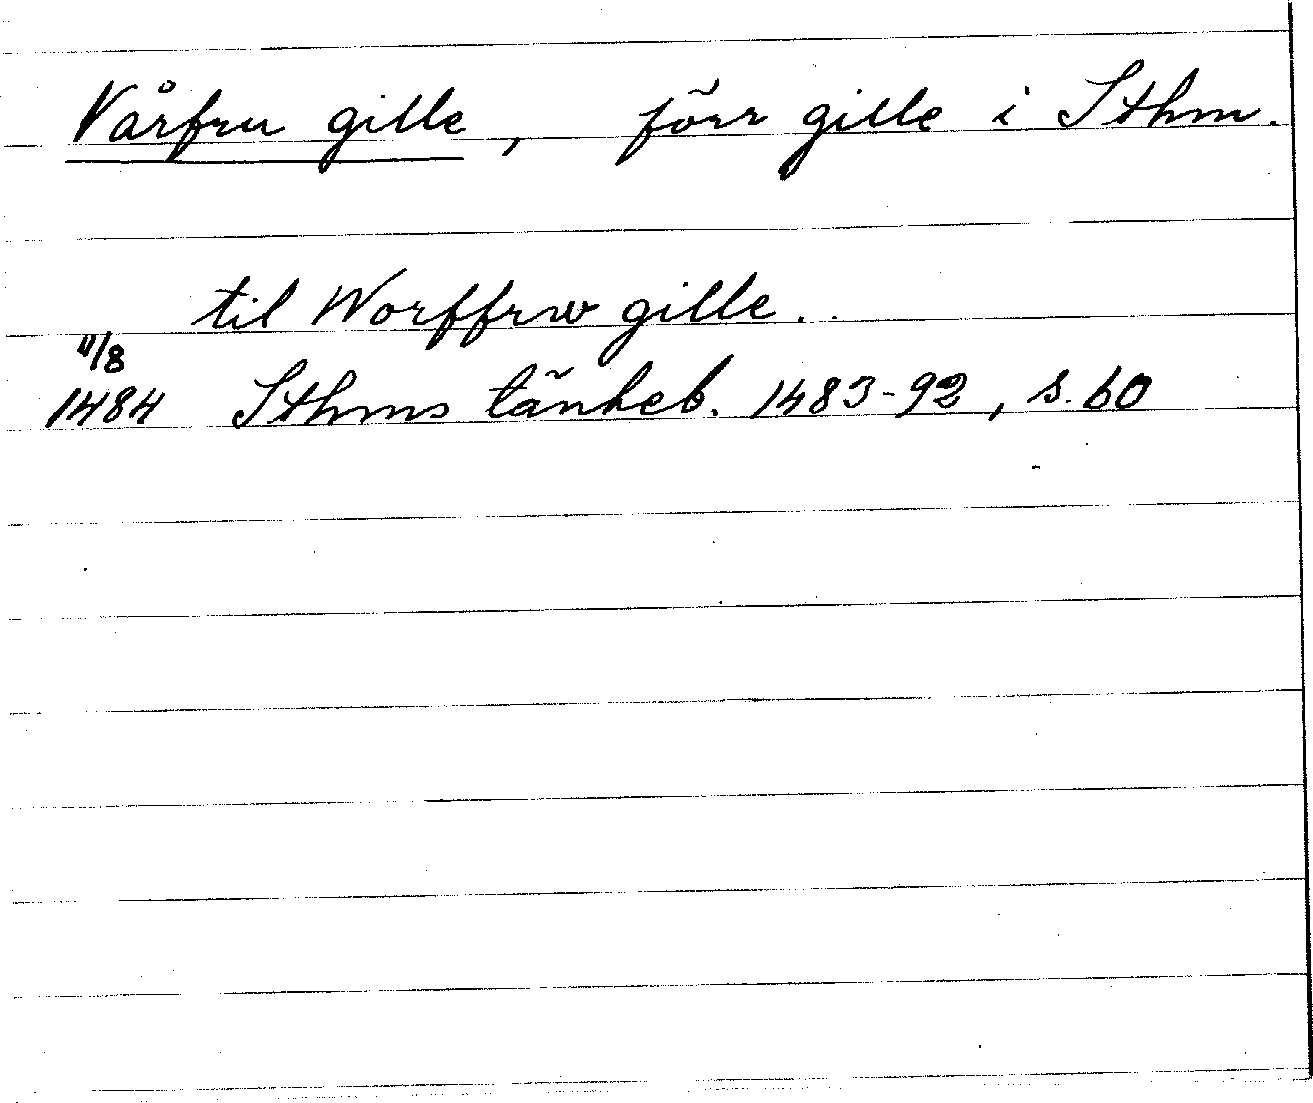 Vårfru gille, förr gille i Sthm.
til Worffrw gille.
11/8
1484 Sthms tänkeb. 1483-92, s. 60